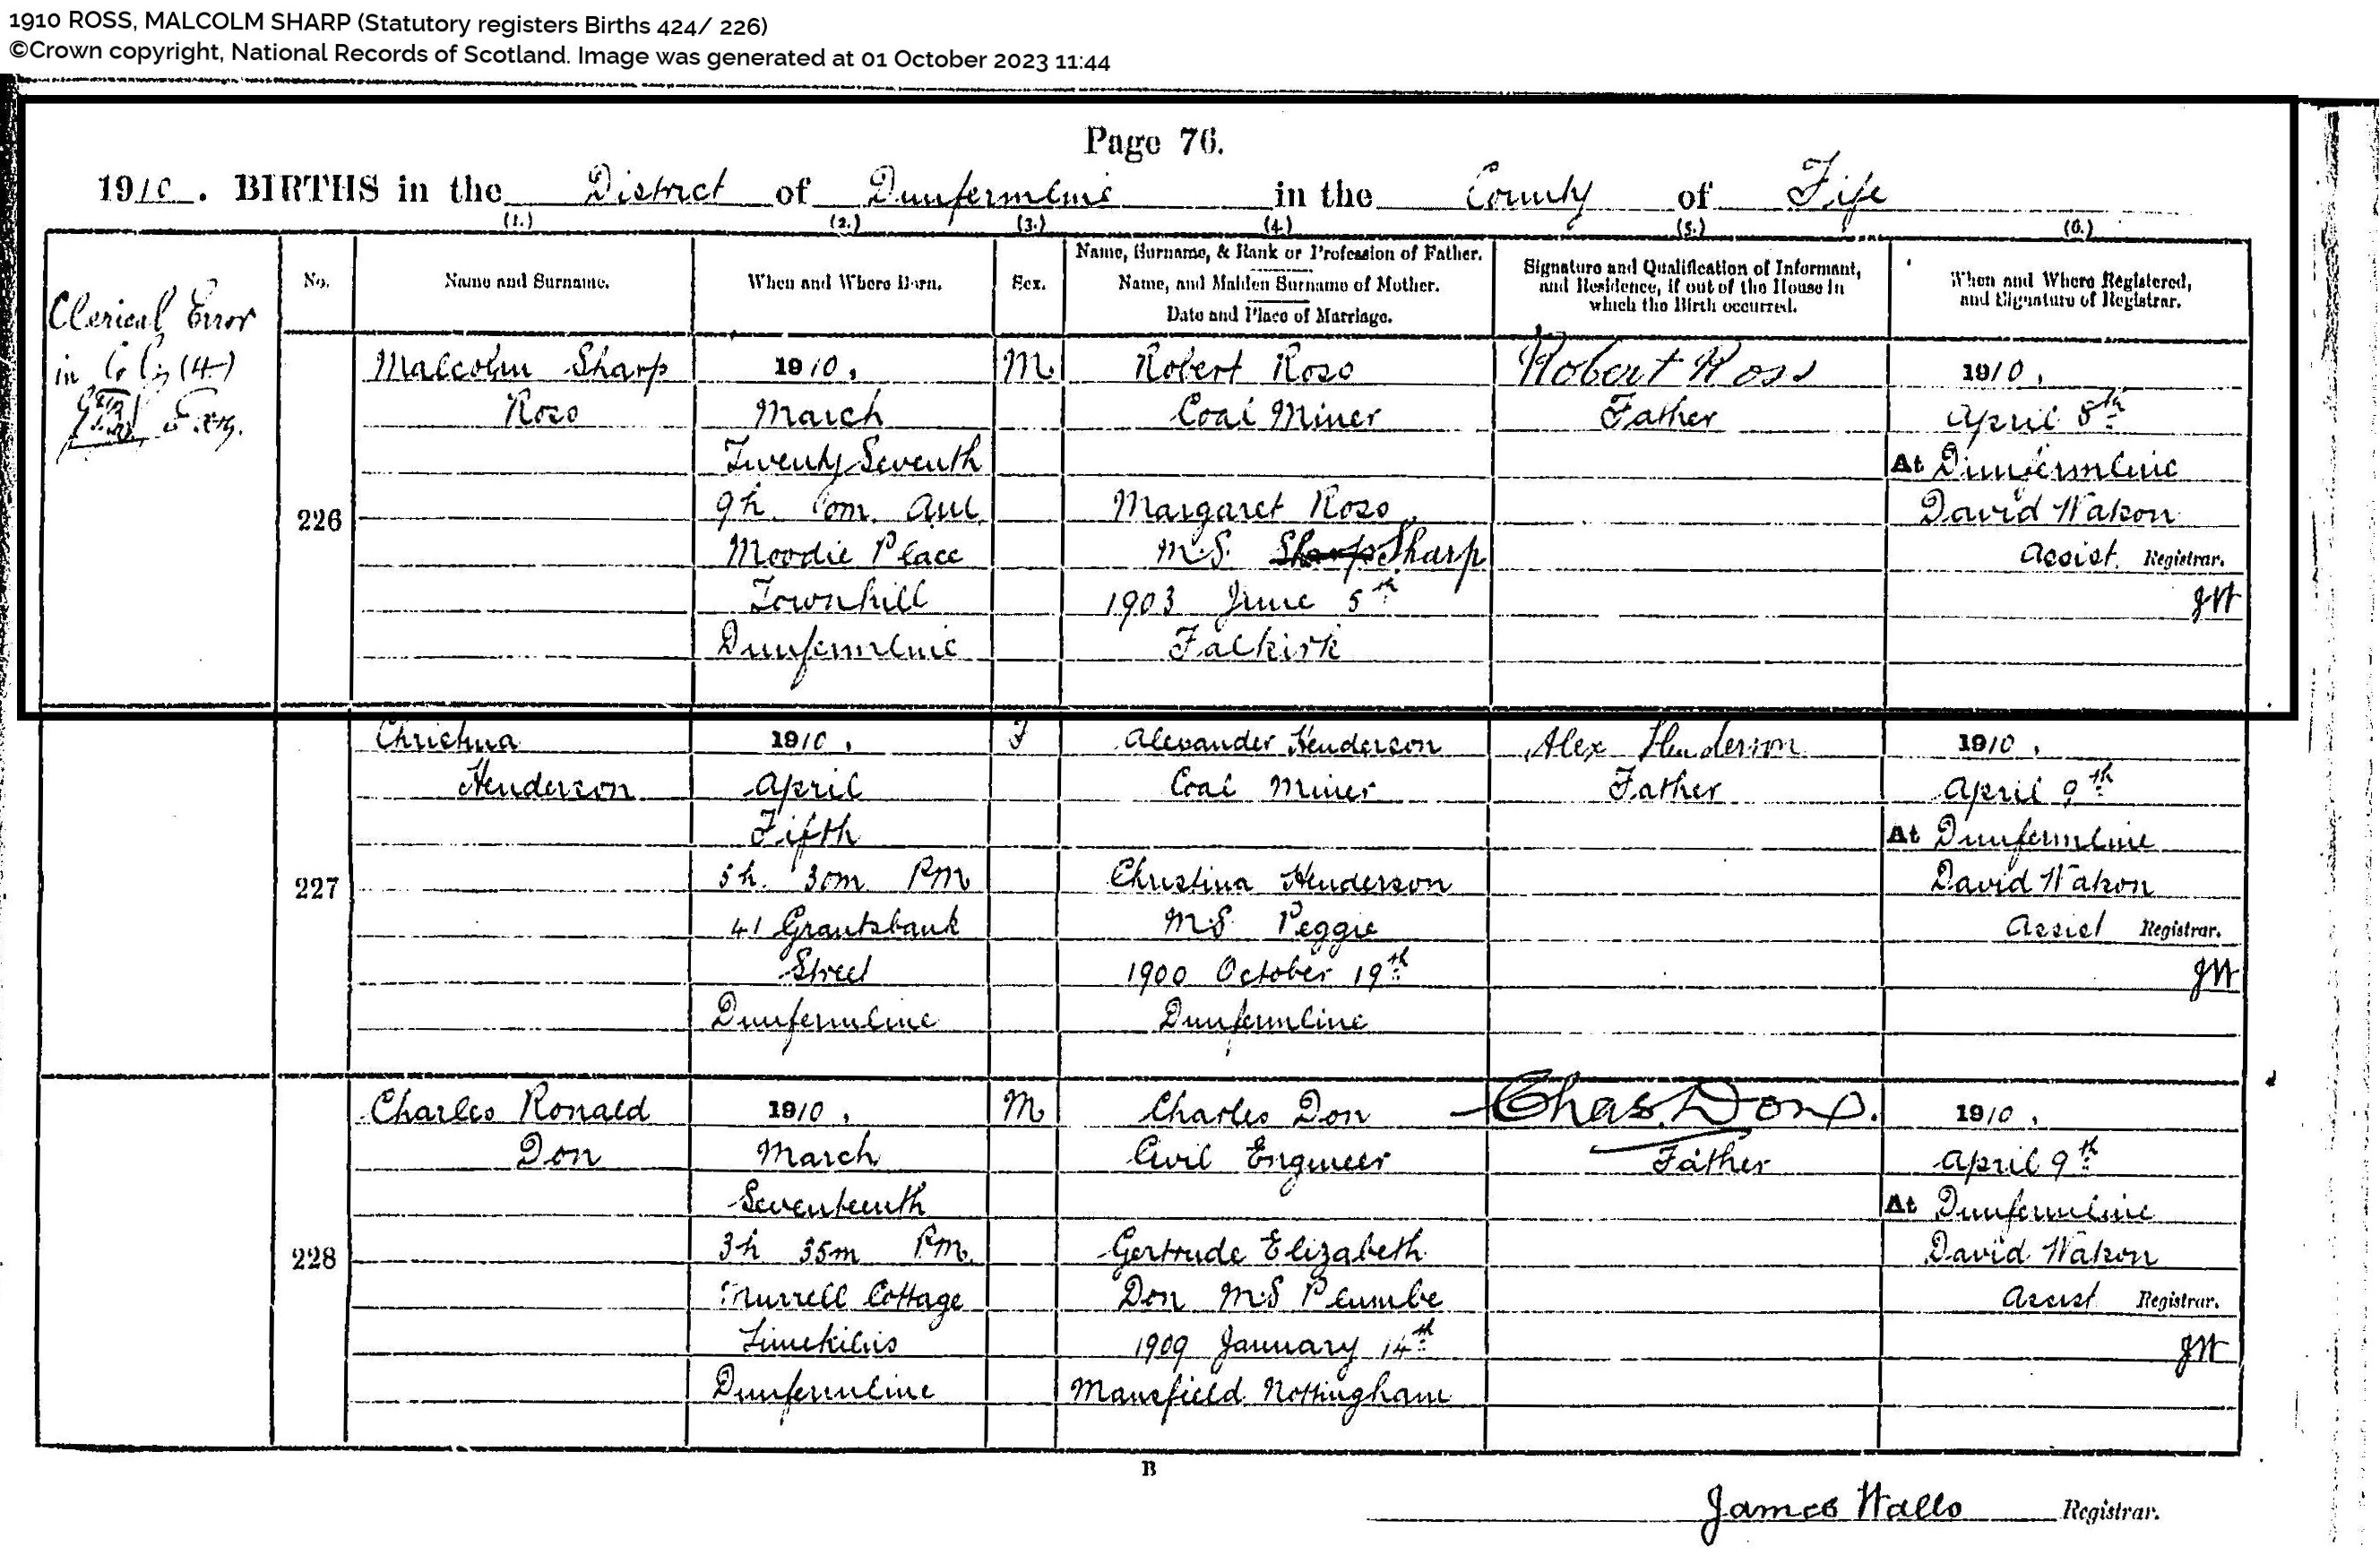 1910 ROSS, MALCOLM SHARP (Statutory registers Births 424/ 226)
©Crown copyright, National Records of Scotland. Image was generated at 01 October 2023 11:44
Page 76.
1910. BIRTHS in the District of Dunfermline in the County of Fife
(1.) (2.) (3.) (4.) (5.) (6.)
No.
Name and Surname.
When and Where Born.
Sex.
Name, Surname, & Rank or Profession of Father.
Name, and Maiden Surname of Mother.
Date and Place of Marriage.
Signature and Qualification of Informant,
and Residence, if out of the House in
which the Birth occurred.
When and Where Registered,
and Signature of Registrar.
Clerical Error
in (4)
226
Malcolm Sharp
Ross
1910.
March
Twenty Seventh
9h 0m AM
Moodie Place
Townhill
Dunfermline
M
Robert Ross
Coal Miner
Margaret Ross
M.S. Sharp Sharp
1903 June 5th
Falkirk
Robert Ross
Father
1910.
April 8th
At Dunfermline
David Watson
Assist. Registrar.
JW
227
Christina
Henderson
1910.
April
Fifth
5h. 30m PM
41 Grantsbank
Street
Dunfermline
F
Alexander Henderson
Coal Miner
Christina Henderson
M.S. Peggie
1900 October 19th
Dunfermline
Alex Henderson
Father
1910.
April 9th
At Dunfermline
David Watson
Assist Registrar.
JW
228
Charles Ronald
Don
1910.
March
Seventeenth
3h 35m PM
Murrell Cottage
Limekilns
Dunfermline
M
Charles Don
Civil Engineer
Gertrude Elizabeth
Don M.S Plumbe
1909 January 14th
Mansfield Nottingham
Chas. Don
Father
1910.
April 9th
At Dunfermline
David Watson
Assist Registrar.
JW
B
James Walls Registrar.